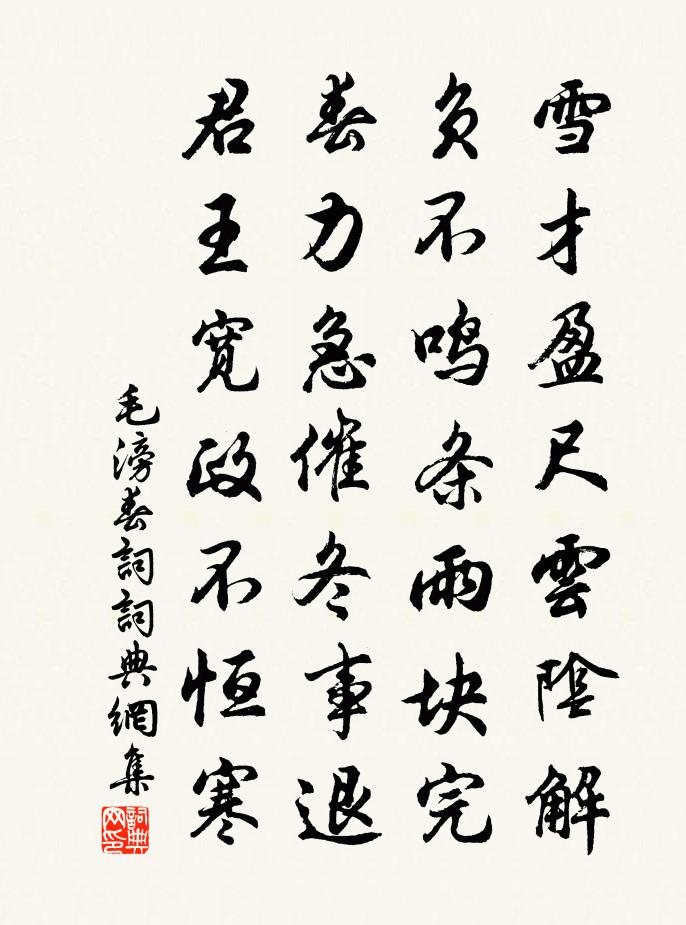 雪才盈尺雲陰解
负不鸣条雨块完
春力急催冬事退
君王寬政不恒寒
毛滂春詞詞典網集
詞典网印